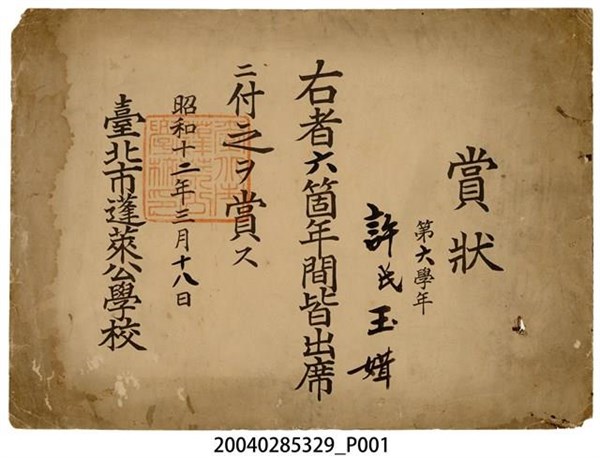 賞狀
第六學年
許氏玉
右者六箇年間皆出席
ニ付之ヲ賞ス
昭和十二年三月十八日
臺北市蓬萊公學校
20040285329_P001